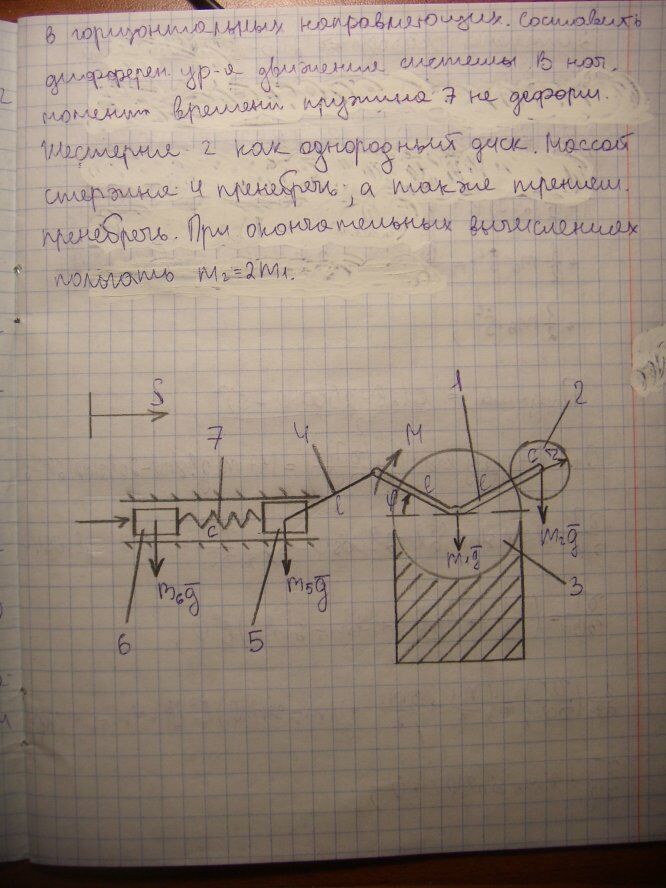 в горизонтальных направляющих. Составить
дифферен. ур-я движения системы. В нач.
момент времени пружина 7 не деформ.
Шестерня 2 как однородный диск. Массой
стержня 4 пренебречь, а также трением
пренебречь. При окончательных вычислениях
полагать m₂=2m₁.
S
1
2
7
4
M
c
r
l
l
l
φ
c
m₁g̅
m₂g̅
3
m₆g̅
m₅g̅
6
5